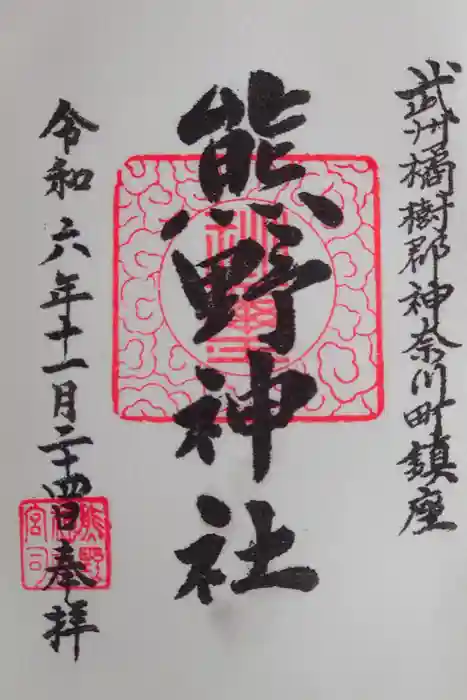 武州橘樹郡神奈川町鎮座
熊野神社
令和六年十一月二十四日奉拝
熊野
宮司